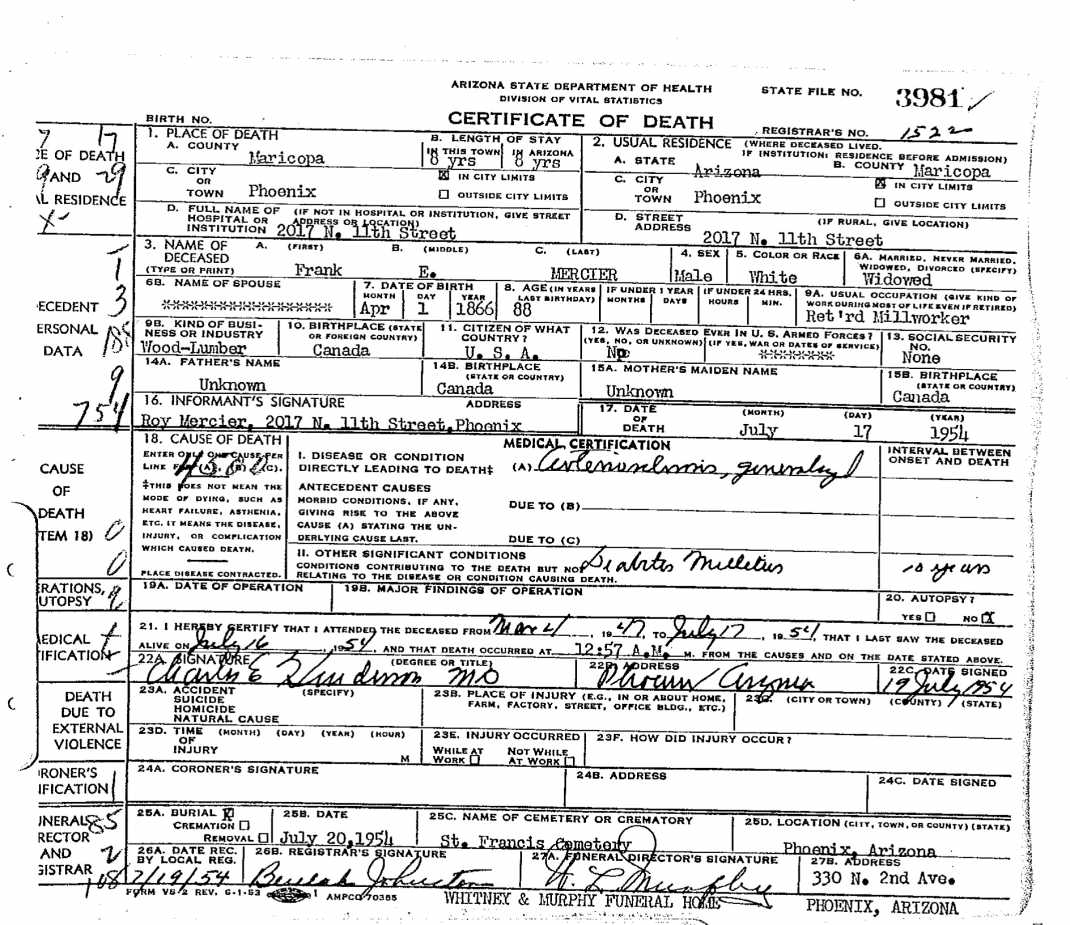 ARIZONA STATE DEPARTMENT OF HEALTH
DIVISION OF VITAL STATISTICS
STATE FILE NO. 3981
BIRTH NO.
CERTIFICATE OF DEATH
REGISTRAR'S NO. 1522
7 17
CE OF DEATH
9 AND 29
AL RESIDENCE
X
1. PLACE OF DEATH
A. COUNTY Maricopa
B. LENGTH OF STAY
IN THIS TOWN 8 yrs
IN ARIZONA 8 yrs
2. USUAL RESIDENCE (WHERE DECEASED LIVED.
IF INSTITUTION: RESIDENCE BEFORE ADMISSION)
A. STATE Arizona
B. COUNTY Maricopa
C. CITY
OR
TOWN Phoenix
☒ IN CITY LIMITS
☐ OUTSIDE CITY LIMITS
C. CITY
OR
TOWN Phoenix
☒ IN CITY LIMITS
☐ OUTSIDE CITY LIMITS
D. FULL NAME OF (IF NOT IN HOSPITAL OR INSTITUTION, GIVE STREET
HOSPITAL OR ADDRESS OR LOCATION)
INSTITUTION 2017 N. 11th Street
D. STREET (IF RURAL, GIVE LOCATION)
ADDRESS
2017 N. 11th Street
1
1
3
ECEDENT
ERSONAL
DATA
9
754
3. NAME OF
DECEASED
(TYPE OR PRINT)
A. (FIRST) B. (MIDDLE) C. (LAST)
Frank E. MERCIER
4. SEX
Male
5. COLOR OR RACE
White
6A. MARRIED, NEVER MARRIED,
WIDOWED, DIVORCED (SPECIFY)
Widowed
6B. NAME OF SPOUSE
*******************
7. DATE OF BIRTH
MONTH DAY YEAR
Apr 1 1866
8. AGE (IN YEARS
LAST BIRTHDAY)
88
IF UNDER 1 YEAR
MONTHS DAYS
IF UNDER 24 HRS.
HOURS MIN.
9A. USUAL OCCUPATION (GIVE KIND OF
WORK DURING MOST OF LIFE EVEN IF RETIRED)
Ret'rd Millworker
9B. KIND OF BUSI-
NESS OR INDUSTRY
Wood-Lumber
10. BIRTHPLACE (STATE
OR FOREIGN COUNTRY)
Canada
11. CITIZEN OF WHAT
COUNTRY?
U. S. A.
12. WAS DECEASED EVER IN U. S. ARMED FORCES?
(YES, NO, OR UNKNOWN) (IF YES, WAR OR DATES OF SERVICE)
No ********
13. SOCIAL SECURITY
NO.
None
14A. FATHER'S NAME
Unknown
14B. BIRTHPLACE
(STATE OR COUNTRY)
Canada
15A. MOTHER'S MAIDEN NAME
Unknown
15B. BIRTHPLACE
(STATE OR COUNTRY)
Canada
16. INFORMANT'S SIGNATURE ADDRESS
Roy Mercier, 2017 N. 11th Street, Phoenix
17. DATE
OF
DEATH
(MONTH) (DAY) (YEAR)
July 17 1954
CAUSE
OF
DEATH
TEM 18) 0
0
18. CAUSE OF DEATH
ENTER ONLY ONE CAUSE PER
LINE FOR (A), (B), (C).
‡THIS DOES NOT MEAN THE
MODE OF DYING, SUCH AS
HEART FAILURE, ASTHENIA,
ETC. IT MEANS THE DISEASE,
INJURY, OR COMPLICATION
WHICH CAUSED DEATH.
PLACE DISEASE CONTRACTED.
MEDICAL CERTIFICATION
INTERVAL BETWEEN
ONSET AND DEATH
I. DISEASE OR CONDITION
DIRECTLY LEADING TO DEATH‡ (A)
ANTECEDENT CAUSES
MORBID CONDITIONS, IF ANY,
GIVING RISE TO THE ABOVE
CAUSE (A) STATING THE UN-
DERLYING CAUSE LAST.
DUE TO (B)
DUE TO (C)
II. OTHER SIGNIFICANT CONDITIONS
CONDITIONS CONTRIBUTING TO THE DEATH BUT NOT
RELATING TO THE DISEASE OR CONDITION CAUSING DEATH.
Diabetes Mellitus 10 years
ERATIONS,
UTOPSY
19A. DATE OF OPERATION
19B. MAJOR FINDINGS OF OPERATION
20. AUTOPSY?
YES ☐ NO ☒
EDICAL
IFICATION
21. I HEREBY CERTIFY THAT I ATTENDED THE DECEASED FROM Mar 21, 1947, TO July 17, 1954, THAT I LAST SAW THE DECEASED
ALIVE ON July 16, 1954, AND THAT DEATH OCCURRED AT 12:57 A.M. M. FROM THE CAUSES AND ON THE DATE STATED ABOVE.
22A. SIGNATURE (DEGREE OR TITLE)
Charles E MD
22B. ADDRESS
Phoenix Arizona
22C. DATE SIGNED
19 July 1954
DEATH
DUE TO
EXTERNAL
VIOLENCE
23A. ACCIDENT (SPECIFY)
SUICIDE
HOMICIDE
NATURAL CAUSE
23B. PLACE OF INJURY (E.G., IN OR ABOUT HOME,
FARM, FACTORY, STREET, OFFICE BLDG., ETC.)
23C. (CITY OR TOWN) (COUNTY) (STATE)
23D. TIME (MONTH) (DAY) (YEAR) (HOUR)
OF
INJURY M
23E. INJURY OCCURRED
WHILE AT WORK ☐ NOT WHILE AT WORK ☐
23F. HOW DID INJURY OCCUR?
RONER'S
IFICATION
24A. CORONER'S SIGNATURE
24B. ADDRESS
24C. DATE SIGNED
UNERAL 85
RECTOR
AND 2
GISTRAR
25A. BURIAL ☒
CREMATION ☐
REMOVAL ☐
25B. DATE
July 20, 1954
25C. NAME OF CEMETERY OR CREMATORY
St. Francis Cemetery
25D. LOCATION (CITY, TOWN, OR COUNTY) (STATE)
Phoenix, Arizona
26A. DATE REC.
BY LOCAL REG.
7/19/54
26B. REGISTRAR'S SIGNATURE
Beulah Johnston
27A. FUNERAL DIRECTOR'S SIGNATURE
W. L. Murphy
27B. ADDRESS
330 N. 2nd Ave.
FORM VS-2 REV. 6-1-53
AMPCO 70365
WHITNEY & MURPHY FUNERAL HOME
PHOENIX, ARIZONA